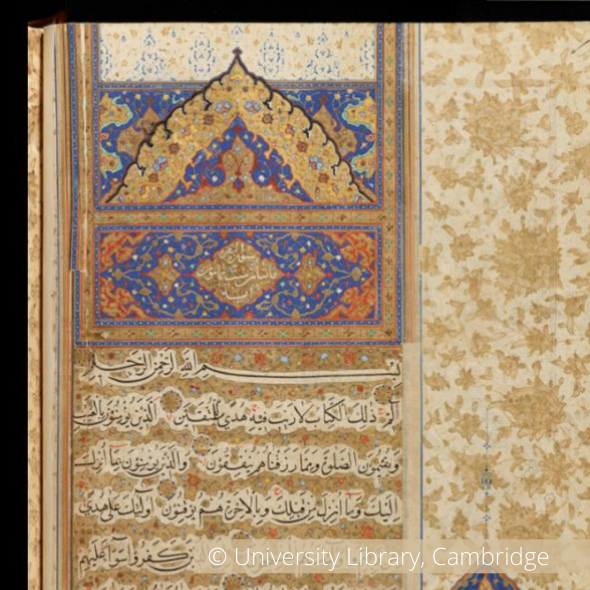 سورة البقرة
بسم الله الرحمن الرحيم
الم ذلك الكتاب لا ريب فيه هدى للمتقين الذين يؤمنون بالغيب
ويقيمون الصلوة ومما رزقناهم ينفقون والذين يؤمنون بما انزل
اليك وما انزل من قبلك وبالاخرة هم يوقنون اولئك على هدى
كفروا سواء عليهم
© University Library, Cambridge